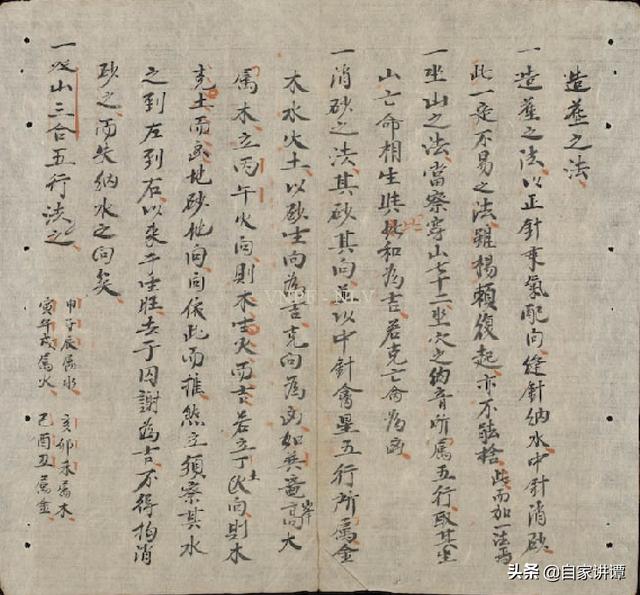 造葬之法
一造葬之法以正針乘氣配向縫針納水中針消砂
此一定不易之法雖楊賴復起亦不能捨此而加一法焉
一坐山之法當察穿山七十二坐穴之納音所屬五行取其坐
山亡命相生與比和為吉若克亡命為凶
一消砂之法其砂其向並以中針禽星五行所屬金
木水火土以砂生向為吉克向為凶如巽竜高大
屬木立丙午火向則木生火而吉若立丁土向則木
克土而凶他砂他向向依此而推然立須察其水
之到左到右以來生旺去于囚謝為吉不得拘消
砂之而失納水之向矣
一山三合五行法之
申子辰屬水 亥卯未屬木
寅午戌屬火 巳酉丑屬金
VNPF NLV
头条 @自家讲谭